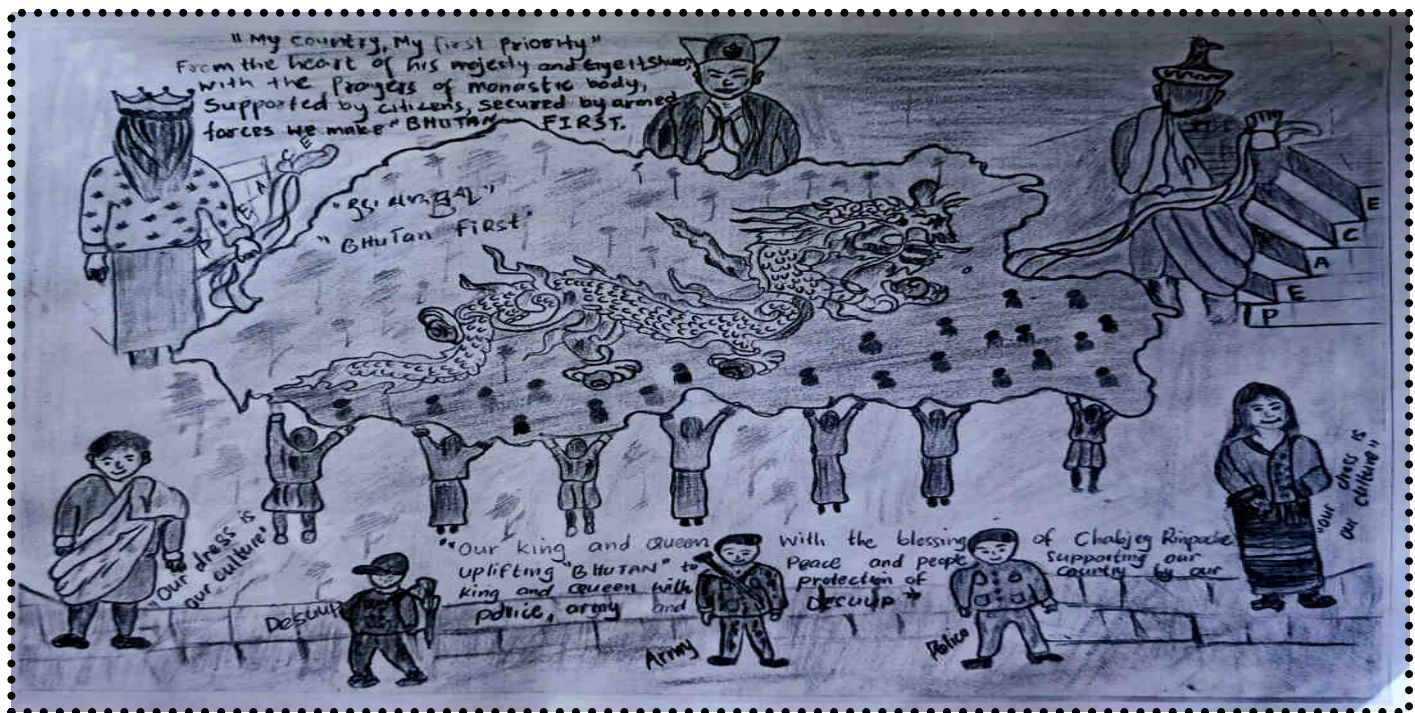 "My country, My first Priority"
From the heart of his mejesty and
with the Prayers of monastic body,
Supported by citizens, secured by armed
forces we make "BHUTAN FIRST.
"BHuTan FiRst"
P E A C E
P E A C E
"Our dress is
our culture"
"Our dress is
our culture"
"Our king and Queen With the blessing of Chabjey Rinpoche
uplifting "BHUTAN" to Peace and peopl Supporting our
king and Queen with protection of country by our
police, army and DESUUP"
Desuup
Army
Police